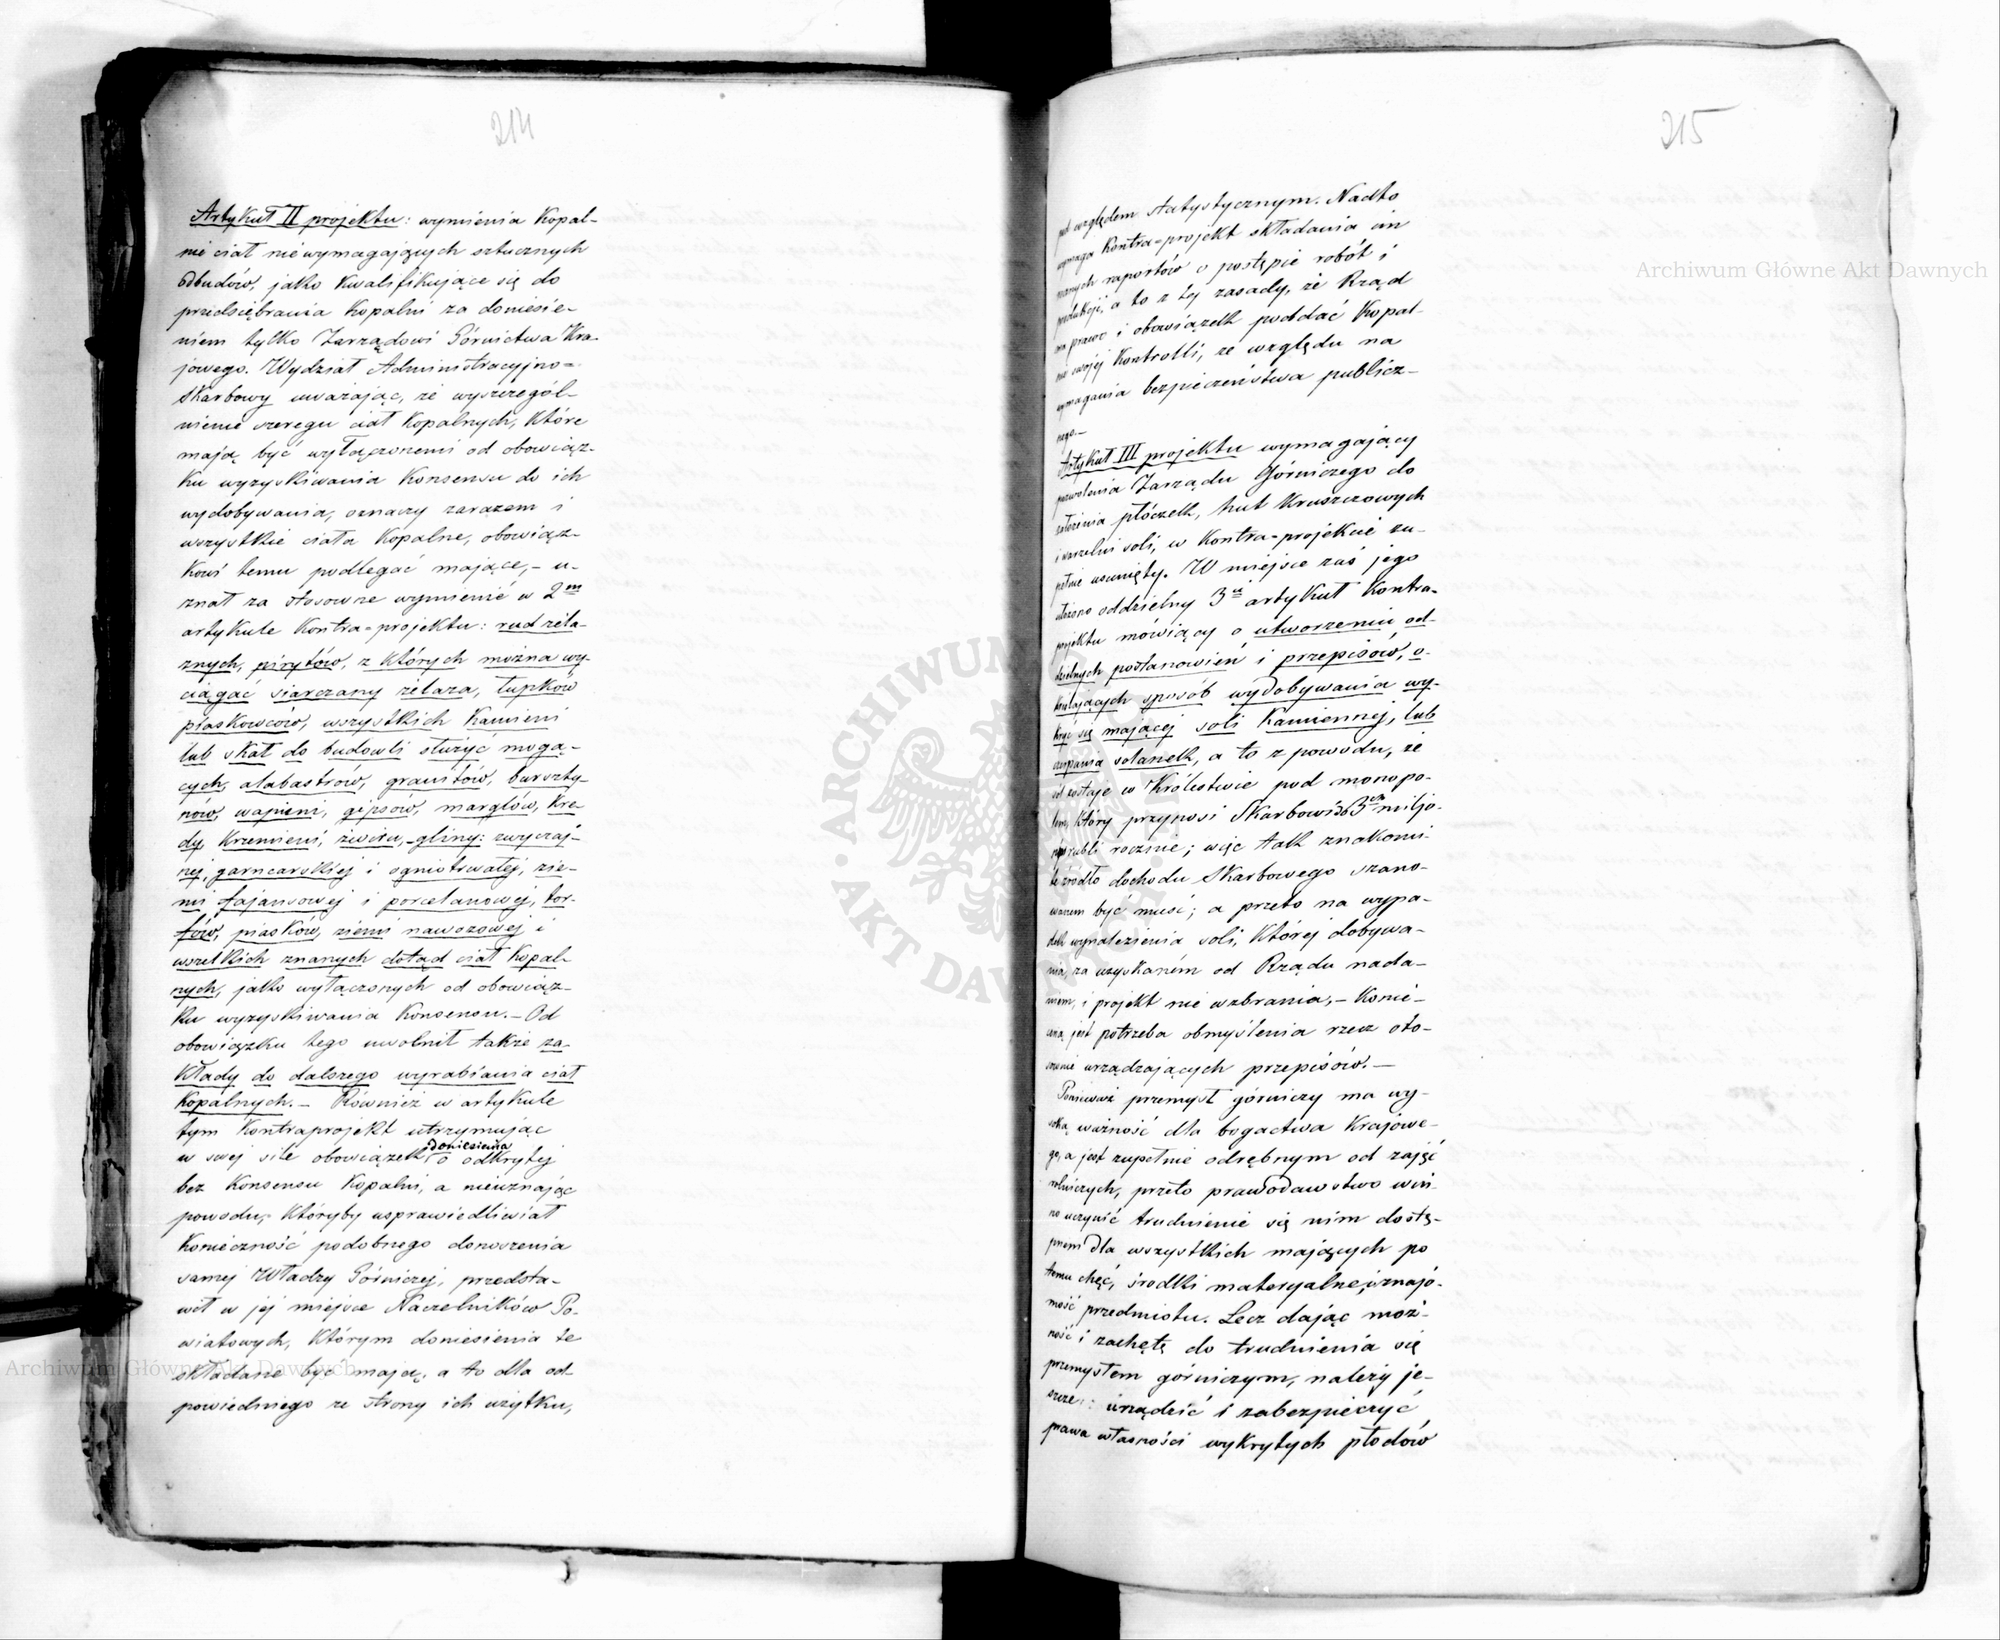 214
Artykuł II projektu: wymienia Kopal-
nie ciał niewymagających sztucznych
odbudów, jako kwalifikujące się do
przedsiębrania Kopalni za doniesie-
niem tylko Zarządowi Górnictwa Kra-
jowego. Wydział Administracyjno=
Skarbowy uważając, że wyszczegól-
nienie szeregu ciał Kopalnych, które
mają być wyłączonemi od obowiąz-
ku wyzyskiwania Konsensu do ich
wydobywania, oznaczy zarazem i
wszystkie ciała Kopalne, obowiąz-
kowi temu podlegać mające, - u-
znał za stosowne wymienić w 2m
artykule Kontra=projektu: rud żela-
znych, pirytów, z których można wy-
ciągać siarczany żelaza, łupków
piaskowców, wszystkich Kamieni
lub skał do budowli służyć mogą-
cych, alabastrów, granitów, burszty-
nów, wapieni, gipsów, marglów, kre-
dy, Krzemieni, żwiru, - gliny: zwyczaj-
nej, garncarskiej i ogniotrwałej, zie-
mi fajansowej i porcelanowej, tor-
fów, piasków, ziemi nawozowej i
wszelkich znanych dotąd ciał Kopal-
nych, jako wyłączonych od obowiąz-
ku wyzyskiwania Konsensu. - Od
obowiązku tego uwolnił także za-
kłady do dalszego wyrabiania ciał
Kopalnych. - Również w artykule
tym Kontraprojekt utrzymując
doniesienia
w swej sile obowiązek o odkrytej
bez Konsensu Kopalni, a nieuznając
powodu, któryby usprawiedliwiał
Konieczność podobnego donoszenia
samej Władzy Górniczej, przedsta-
wił w jej miejsce Naczelników Po-
wiatowych, którym doniesienia te
składane być mają, a to dla od-
powiedniego ze strony ich użytku,
215
pod względem statystycznym. Nadto
wymaga Kontra=projekt składania im
raportów o postępie robót i
produkcji, a to z tej zasady, że Rząd
ma prawo i obowiązek poddać Kopal-
nie swojej Kontrolli, ze względu na
wymagania bezpieczeństwa publicz-
nego. -
Artykuł III projektu wymagający
pozwolenia Zarządu Górniczego do
założenia płóczek, hut Kruszczowych
i warzelni soli, w Kontra=projekcie zu-
pełnie usunięty. W miejsce zaś jego
ułożono oddzielny 3ci artykuł Kontra-
projektu mówiący o utworzeniu od-
dzielnych postanowień i przepisów, o-
kreślających sposób wydobywania wy-
kryć się mającej soli Kamiennej, lub
czerpania solanek, a to z powodu, że
sól zostaje w Królestwie pod monopo-
lem, który przynosi Skarbowi do 3ch miljo-
nów rubli rocznie; więc tak znakomi-
te źródło dochodu Skarbowego szano-
wanem być musi; a przeto na wypa-
dek wynalezienia soli, której dobywa-
nia, za uzyskaném od Rządu nada-
niem, i projekt nie wzbrania, - Konie-
czną jest potrzeba obmyślenia rzecz oto-
urządzających przepisów. -
Ponieważ przemysł górniczy ma wy-
soką ważność dla bogactwa Krajowe-
go, a jest zupełnie odrębnym od zajęć
rolniczych, przeto prawodawstwo win-
no uczynić trudnienie się nim dostę-
pnem dla wszystkich mających po
temu chęć, środki materyalne, i znajo-
mość przedmiotu. Lecz dając moż-
ność i zachętę do trudnienia się
przemysłem górniczym, należy je-
szcze: urządzić i zabezpieczyć
prawa własności wykrytych płodów
Archiwum Główne Akt Dawnych
Archiwum Główne Akt Dawnych
ARCHIWUM
AKT DAWNYCH